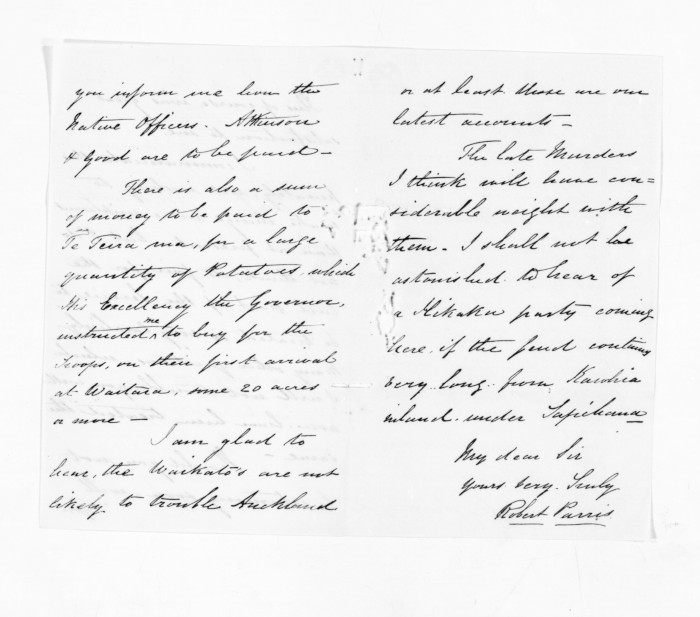 you inform me how the
Native Officers. Atkinson
& Good are to be paid –
There is also a sum
of money to be paid to
Te Teira ma, for a large
quantity of Potatoes which
His Excellency the Governor,
instructed me to buy for the
Troops, on their first arrival
at Waitara, some 20 acres
or more –
I am glad to
hear, the Waikato's are not
likely to trouble Auckland
or at least those are our
latest accounts –
The late Murders
I think will have con=
siderable weight with
them. I shall not be
astonished to hear of
a Hikaka party coming
here, if the feud continues
very long. from Kawhia
inland. under Tapihana
My dear Sir
Yours very. Truly
Robert Parris